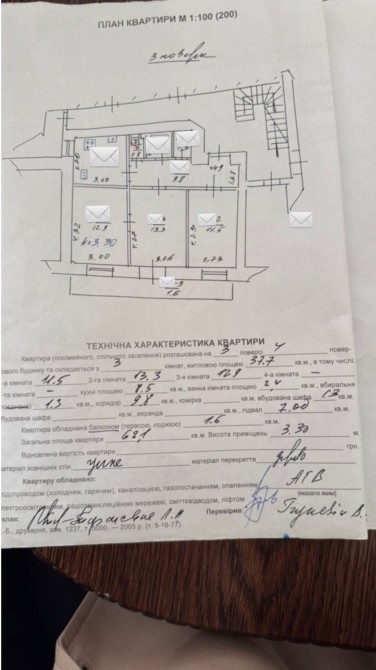 ПЛАН КВАРТИРИ М 1:100 (200)
3 поверх
3.00
9.8
12.9
h=3.30
13.3
2
11.5
4.32
3.00
3.06
2.73
1.6
ТЕХНІЧНА ХАРАКТЕРИСТИКА КВАРТИРИ
Квартира (посімейного, спільного заселення) розташована на 3 поверсі 4 повер-
ового будинку та складається з 3 кімнат, житловою площею 37.7 кв.м., в тому числі
-а кімната 11.5 2-га кімната 13.3 3-я кімната 12.9 кв.м., 4-а кімната –
-та кімната – кухні площею 8.5 кв.м., ванна кімната площею 2.4 кв.м., вбиральня
1.3 кв.м., коридор 9.8 кв.м., комірка кв.м., вбудована шафа 1.3 кв.м.
вбудована шафа кв.м., веранда кв.м., підвал 7.00 кв.м.
Квартира обладнана балконом (терасою, лоджією) 1.6 кв.м.
Загальна площа квартири 62.1 кв.м. Висота приміщень 3.30 м.
Відновлена вартість квартири грн.
матеріал зовнішніх стін матеріал перекриття
Квартиру обладнано:
водопроводом (холодним, гарячим), каналізацією, газопостачанням, опаленням АГВ
(вказати яким)
лектроосвітленням, радіотрансляційною мережею, сміттєпроводом, ліфтом
клав: Перевірив:
-Б., друкарня, зам. 1237, т. 5000. — 2005 р. (т. 5-16-77)